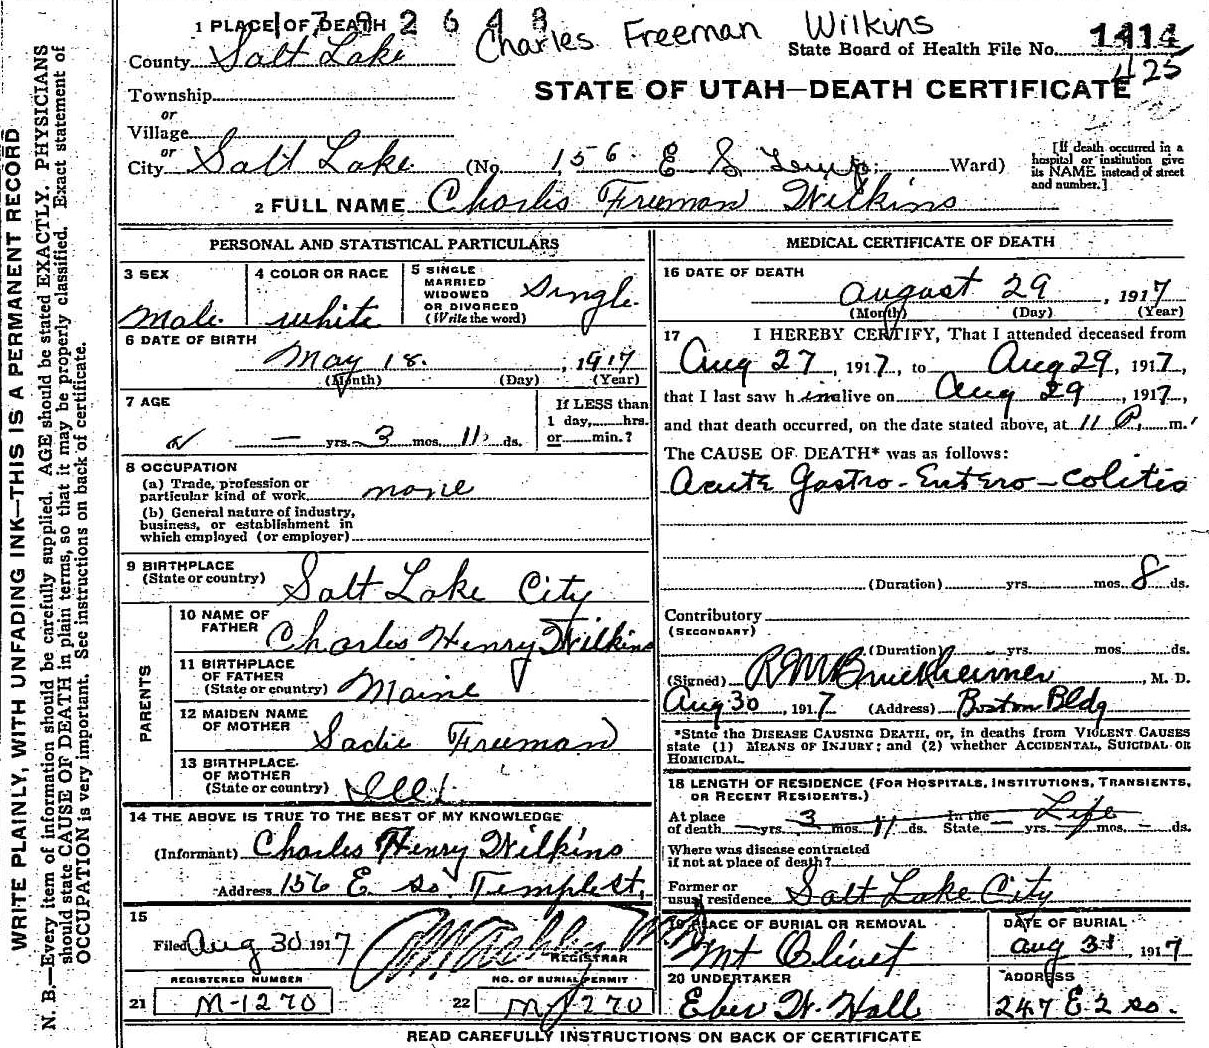 1 PLACE OF DEATH
2 6 4 8
Charles Freeman Wilkins
State Board of Health File No. 1414
425
County Salt Lake
STATE OF UTAH—DEATH CERTIFICATE
Township
or
Village
or
City Salt Lake (No. 156 E S Temp. Ward)
[If death occurred in a hospital or institution give its NAME instead of street and number.]
2 FULL NAME Charles Freeman Wilkins
PERSONAL AND STATISTICAL PARTICULARS
3 SEX
Male
4 COLOR OR RACE
white
5 SINGLE MARRIED WIDOWED OR DIVORCED (Write the word) Single
6 DATE OF BIRTH
May 18. , 1917
(Month) (Day) (Year)
7 AGE
— yrs. 3 mos. 11 ds.
If LESS than 1 day, hrs. or min.?
8 OCCUPATION
(a) Trade, profession or particular kind of work none
(b) General nature of industry, business, or establishment in which employed (or employer)
9 BIRTHPLACE (State or country) Salt Lake City
PARENTS
10 NAME OF FATHER Charles Henry Wilkins
11 BIRTHPLACE OF FATHER (State or country) Maine
12 MAIDEN NAME OF MOTHER Sadie Freeman
13 BIRTHPLACE OF MOTHER (State or country) Ill.
14 THE ABOVE IS TRUE TO THE BEST OF MY KNOWLEDGE
(Informant) Charles Henry Wilkins
Address 156 E. So. Temple st.
15
Filed Aug 30 1917
REGISTRAR
REGISTERED NUMBER
21 M-1270
NO. OF BURIAL PERMIT
22 M-1270
MEDICAL CERTIFICATE OF DEATH
16 DATE OF DEATH
August 29 , 1917
(Month) (Day) (Year)
17 I HEREBY CERTIFY, That I attended deceased from
Aug 27, 1917, to Aug 29, 1917,
that I last saw him alive on Aug 29, 1917,
and that death occurred, on the date stated above, at 11 P. m.
The CAUSE OF DEATH* was as follows:
Acute Gastro-Entero-Colitis
(Duration) yrs. mos. 8 ds.
Contributory
(SECONDARY)
(Duration) yrs. mos. ds.
(Signed) , M. D.
Aug 30, 1917 (Address) Boston Bldg
*State the DISEASE CAUSING DEATH, or, in deaths from VIOLENT CAUSES
state (1) MEANS OF INJURY; and (2) whether ACCIDENTAL, SUICIDAL OR
HOMICIDAL.
18 LENGTH OF RESIDENCE (FOR HOSPITALS, INSTITUTIONS, TRANSIENTS,
OR RECENT RESIDENTS.)
At place of death — yrs. 3 mos. 11 ds. In the State — yrs. Life mos. — ds.
Where was disease contracted if not at place of death?
Former or usual residence Salt Lake City
19 PLACE OF BURIAL OR REMOVAL
Mt Olivet
DATE OF BURIAL
Aug 31 1917
20 UNDERTAKER
Eber W. Hall
ADDRESS
247 E 2 So.
READ CAREFULLY INSTRUCTIONS ON BACK OF CERTIFICATE
WRITE PLAINLY, WITH UNFADING INK—THIS IS A PERMANENT RECORD
N. B.—Every item of information should be carefully supplied. AGE should be stated EXACTLY. PHYSICIANS
should state CAUSE OF DEATH in plain terms, so that it may be properly classified. Exact statement of
OCCUPATION is very important. See instructions on back of certificate.